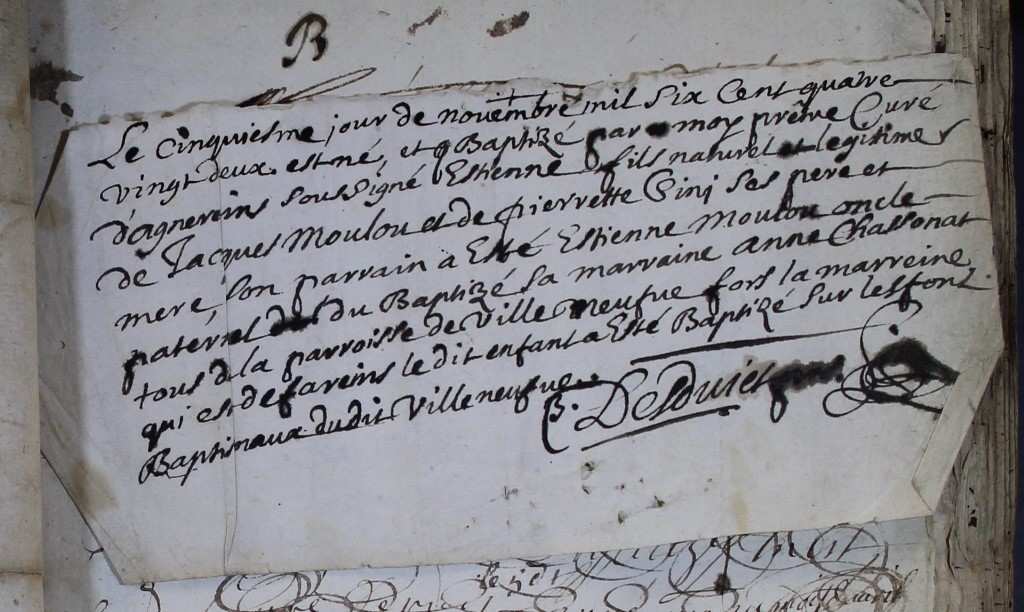 B
Le Cinquiesme jour de novembre mil six Cent quatre
vingt deux. est né, et Baptizé par moy prêtre Curé
d'agnereins soussigné Estienne fils naturel et legitime
de Jacques Moulou et de pierrette Gini ses pere et
mere, son parrain a Esté Estienne Moulou oncle
paternel du Baptizé sa marraine anne Chassonat
tous de la parroisse de Ville neufue fors la marreine
qui est de fareins le dit enfant a Esté Baptizé sur les font
Baptimaux du dit Ville neufue.